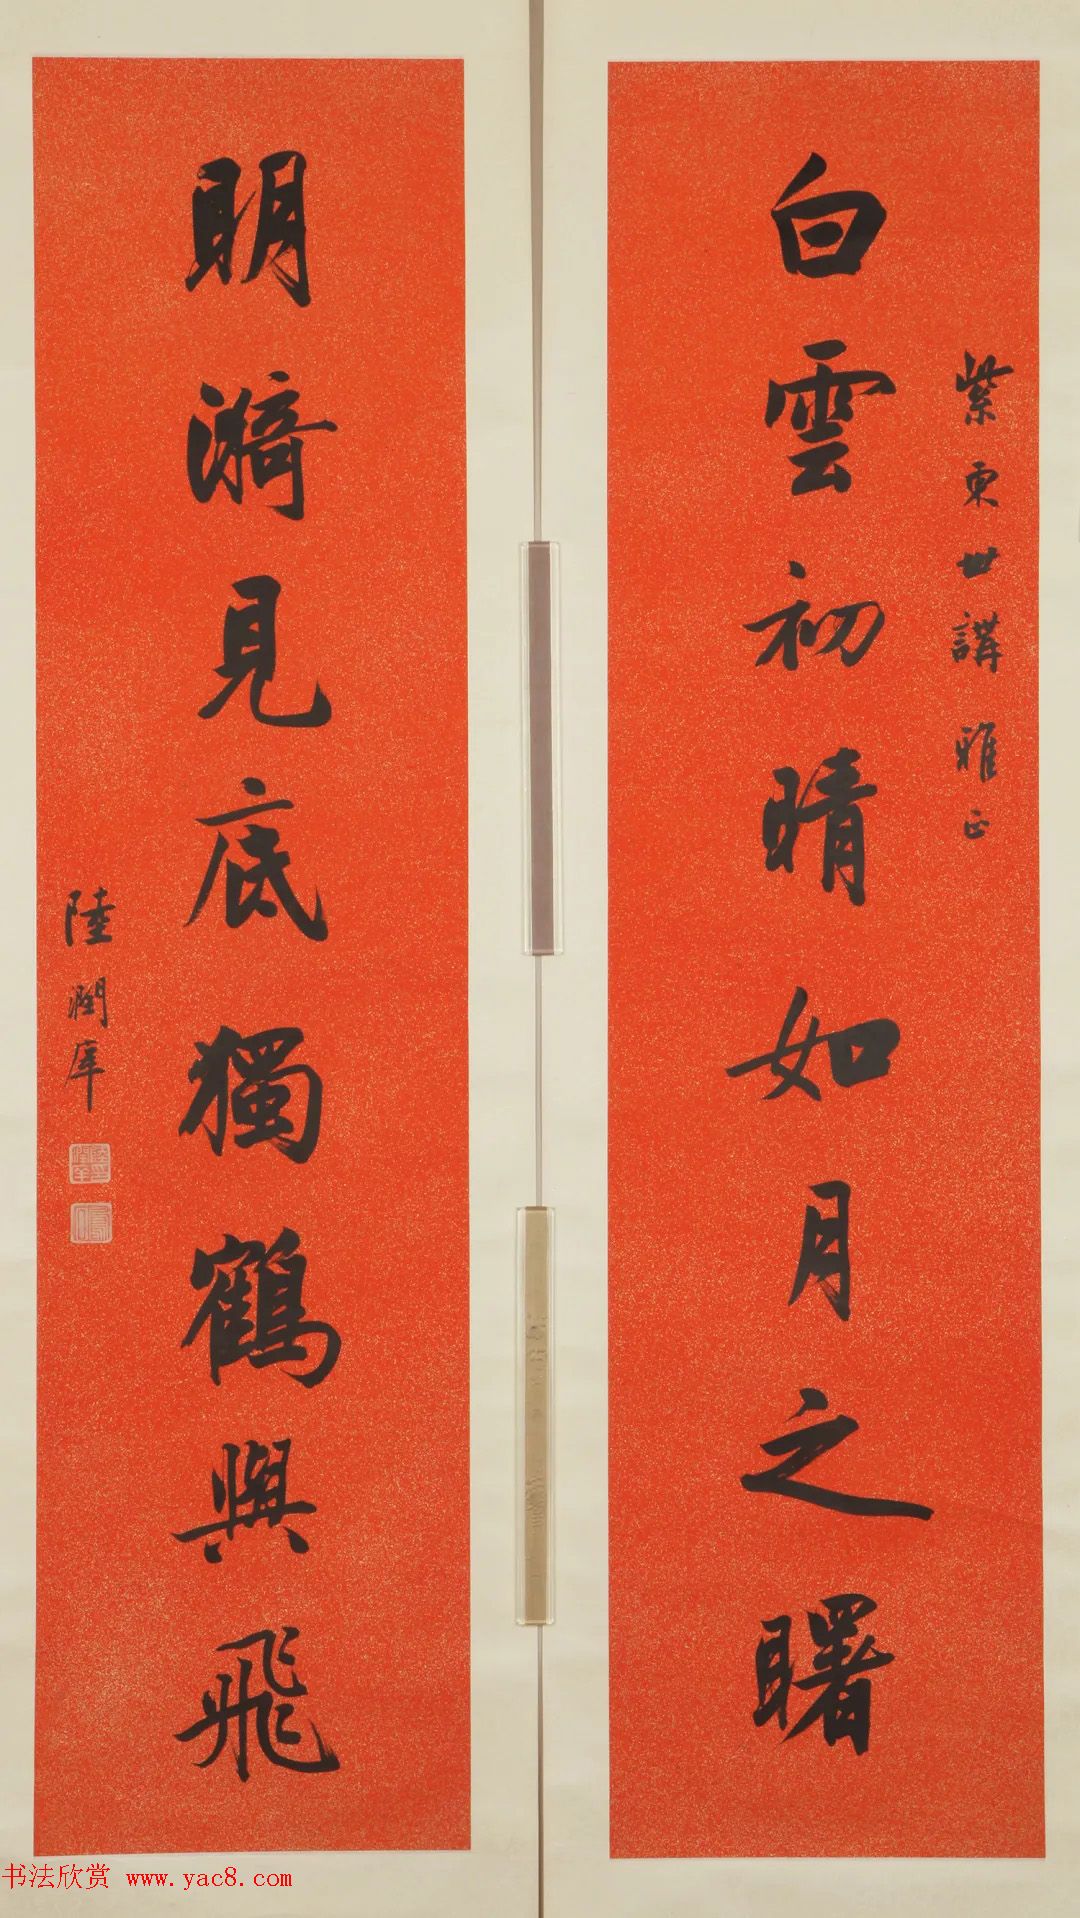 紫東世講雅正
白雲初晴如月之曙
明漪見底獨鶴與飛
陸潤庠
书法欣赏 www.yac8.com